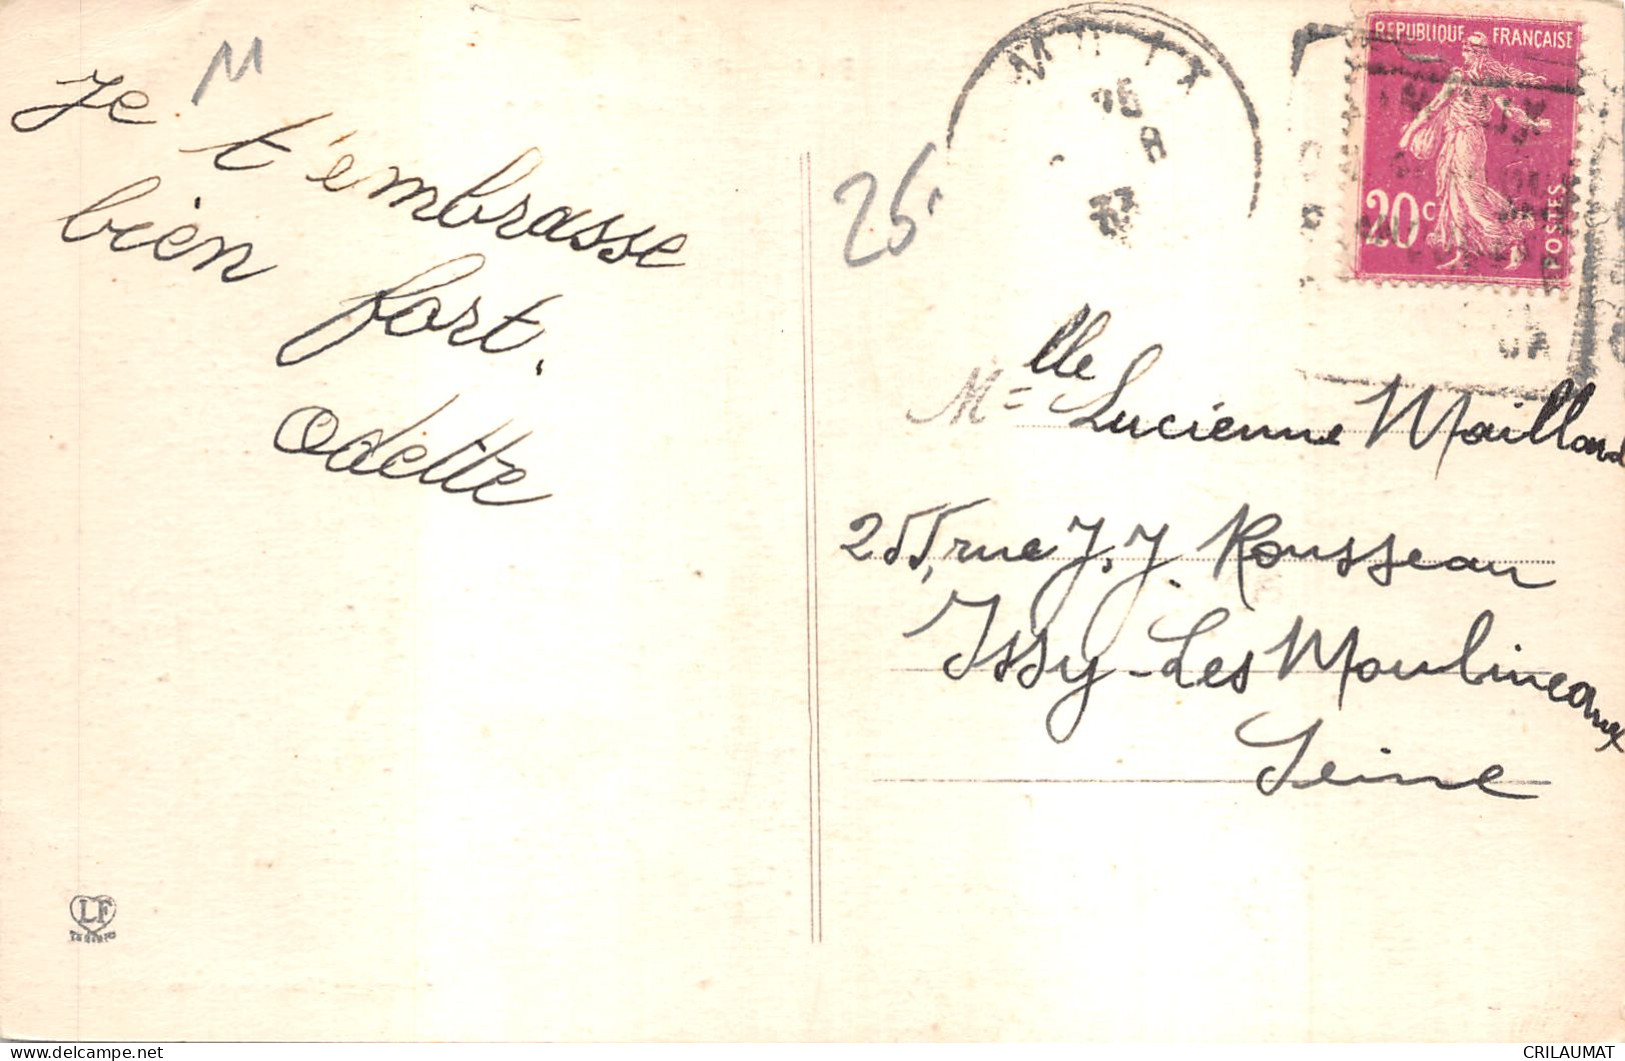 M
Je t'embrasse
bien fort.
Odette
LF
25
RÉPUBLIQUE FRANÇAISE
20c
POSTES
Mlle Lucienne Maillard
255, rue J.J. Rousseau
Issy-Les Moulineaux
Seine
CRILAUMAT